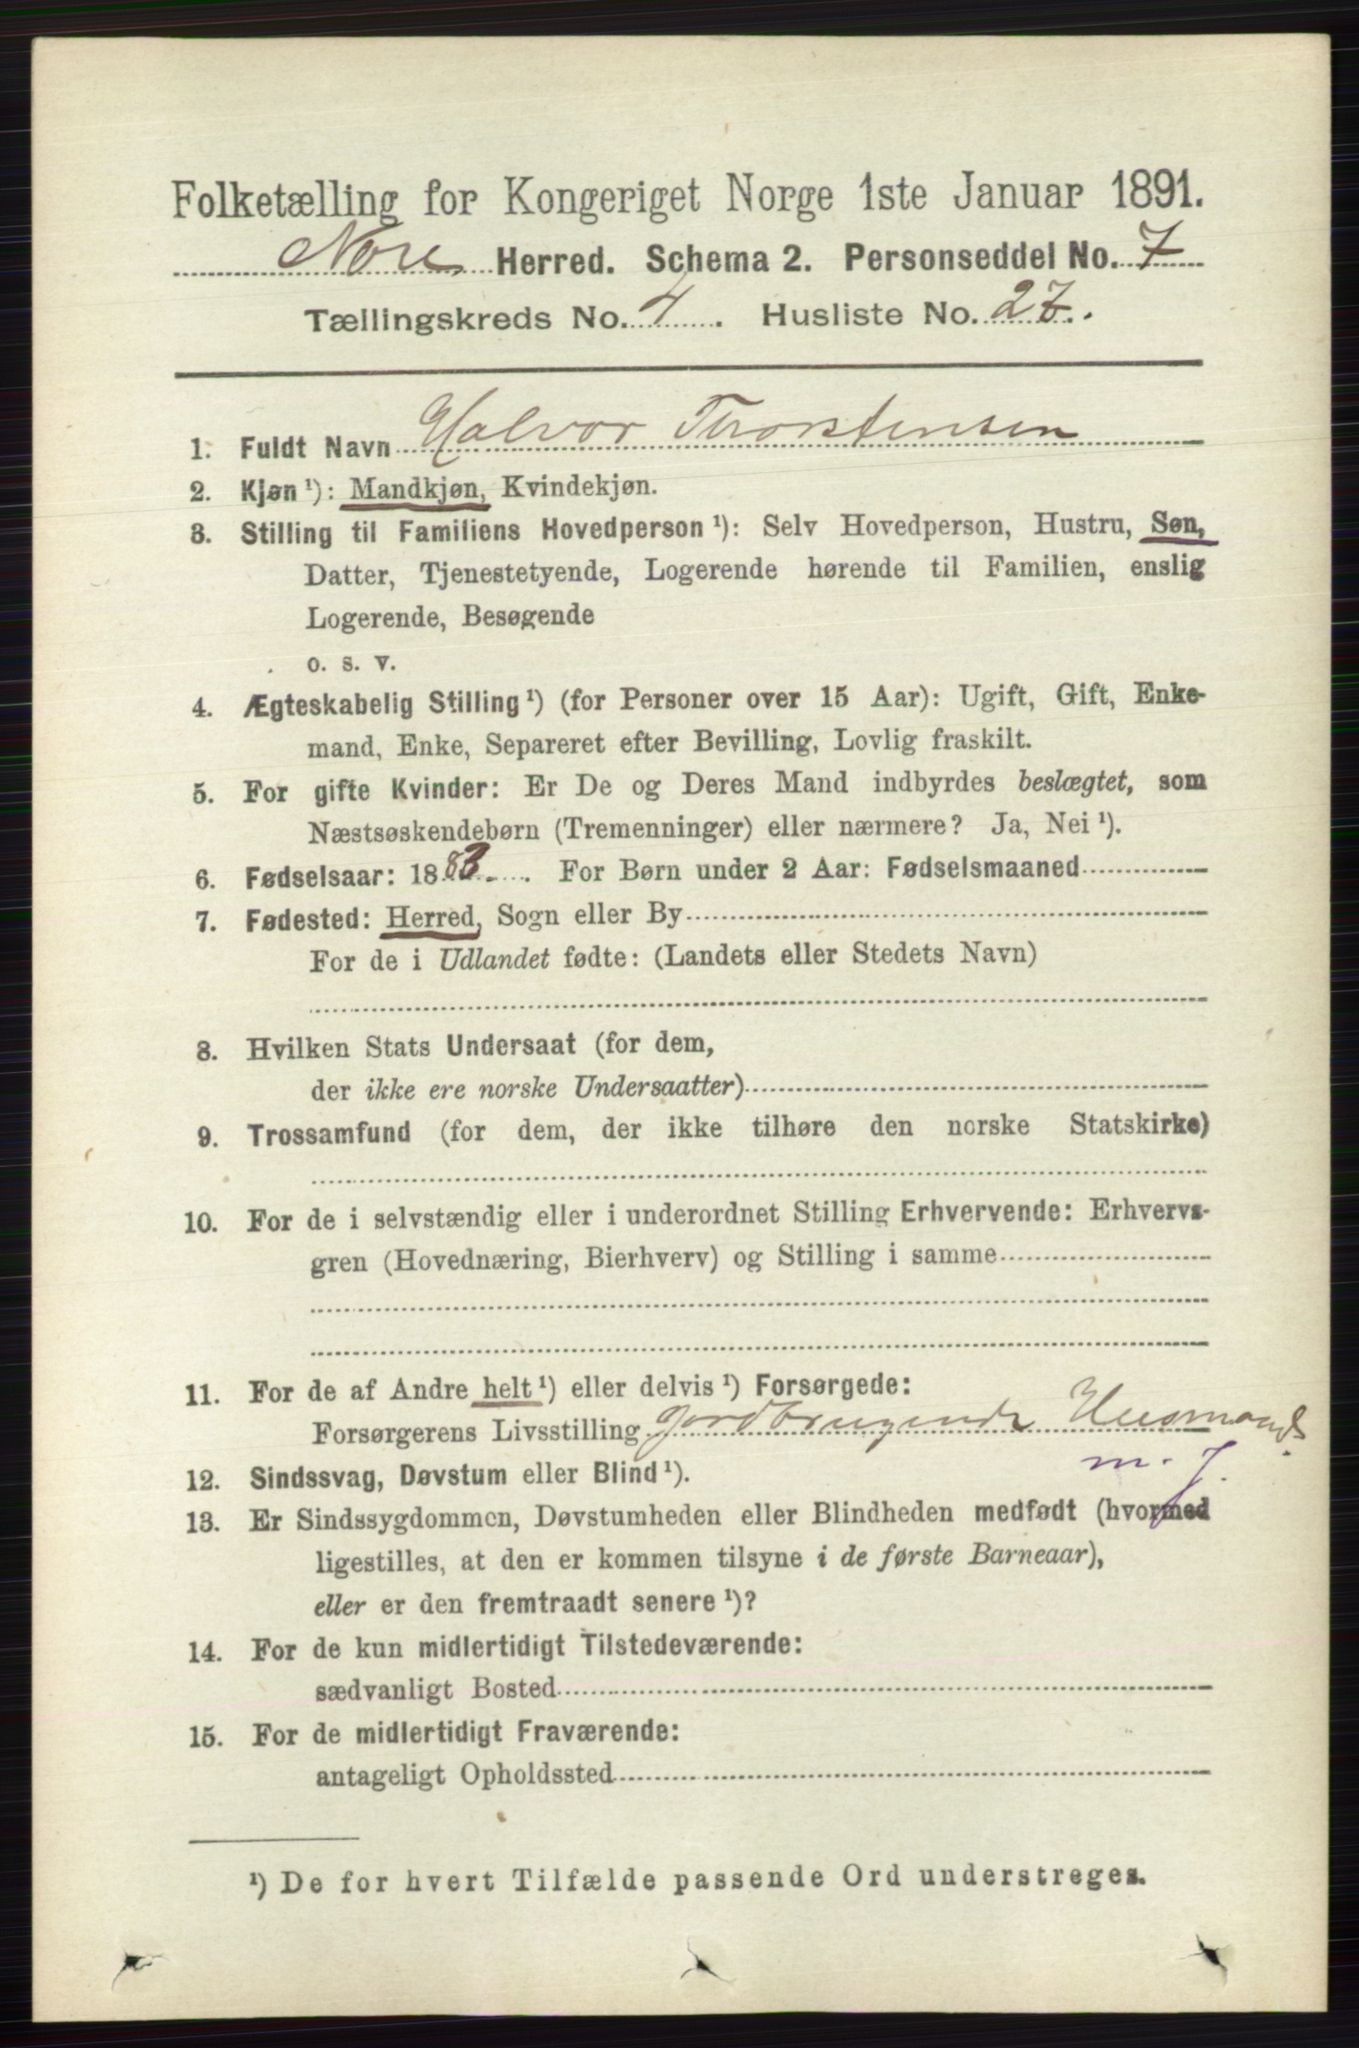 Folketælling for Kongeriget Norge 1ste Januar 1891.
Nore Herred. Schema 2. Personseddel No. 7
Tællingskreds No. 4. Husliste No. 27.
1. Fuldt Navn Halvor Thorstensen
2. Kjøn ¹): Mandkjøn, Kvindekjøn.
3. Stilling til Familiens Hovedperson ¹): Selv Hovedperson, Hustru, Søn,
Datter, Tjenestetyende, Logerende hørende til Familien, enslig
Logerende, Besøgende
o. s. v.
4. Ægteskabelig Stilling ¹) (for Personer over 15 Aar): Ugift, Gift, Enke-
mand, Enke, Separeret efter Bevilling, Lovlig fraskilt.
5. For gifte Kvinder: Er De og Deres Mand indbyrdes beslægtet, som
Næstsøskendebørn (Tremenninger) eller nærmere? Ja, Nei ¹).
6. Fødselsaar: 1883. For Børn under 2 Aar: Fødselsmaaned
7. Fødested: Herred, Sogn eller By
For de i Udlandet fødte: (Landets eller Stedets Navn)
8. Hvilken Stats Undersaat (for dem,
der ikke ere norske Undersaatter)
9. Trossamfund (for dem, der ikke tilhøre den norske Statskirke)
10. For de i selvstændig eller i underordnet Stilling Erhvervende: Erhvervs-
gren (Hovednæring, Bierhverv) og Stilling i samme
11. For de af Andre helt ¹) eller delvis ¹) Forsørgede:
Forsørgerens Livsstilling jordbrugende Husmand
m. J.
12. Sindssvag, Døvstum eller Blind ¹).
13. Er Sindssygdommen, Døvstumheden eller Blindheden medfødt (hvormed
ligestilles, at den er kommen tilsyne i de første Barneaar),
eller er den fremtraadt senere ¹)?
14. For de kun midlertidigt Tilstedeværende:
sædvanligt Bosted
15. For de midlertidigt Fraværende:
antageligt Opholdssted
¹) De for hvert Tilfælde passende Ord understreges.